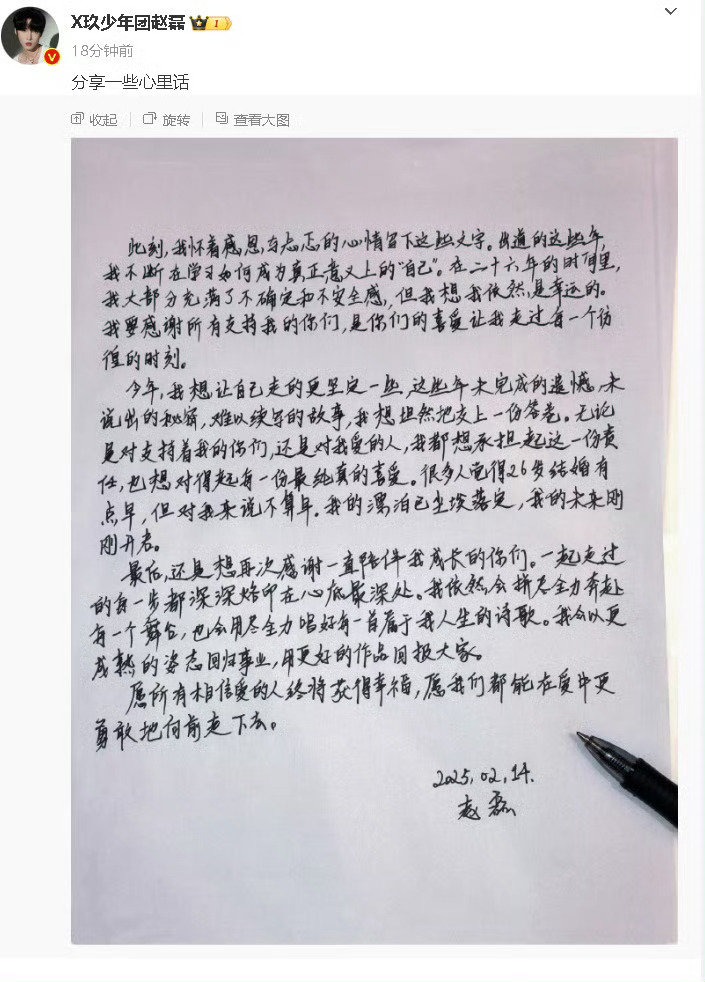 X玖少年团赵磊 1
18分钟前
分享一些心里话
收起 旋转 查看大图
此刻,我怀着感恩与忐忑的心情留下这些文字。出道的这些年,
我不断在学习如何成为真正意义上的"自己"。在二十六年的时间里,
我大部分充满了不确定和不安全感,但我想我依然是幸运的。
我要感谢所有支持我的你们,是你们的喜爱让我走过每一个彷
徨的时刻。
今年,我想让自己走的更坚定一些,这些年未完成的遗憾,未
说出的秘密,难以续写的故事,我想坦然把交上一份答卷。无论
是对支持着我的你们,还是对我爱的人,我都想承担起这一份责
任,也想对得起每一份最纯真的喜爱。很多人觉得26岁结婚有
点早,但对我来说不算早。我的漂泊已尘埃落定,我的未来刚
刚开启。
最后,还是想再次感谢一直陪伴我成长的你们。一起走过
的每一步都深深烙印在心底最深处。我依然会拼尽全力奔赴
每一个舞台,也会用尽全力唱好每一首属于我人生的诗歌。我会以更
成熟的姿态回归事业,用更好的作品回报大家。
愿所有相信爱的人终将获得幸福,愿我们都能在爱中更
勇敢地向前走下去。
2025.02.14.
赵磊